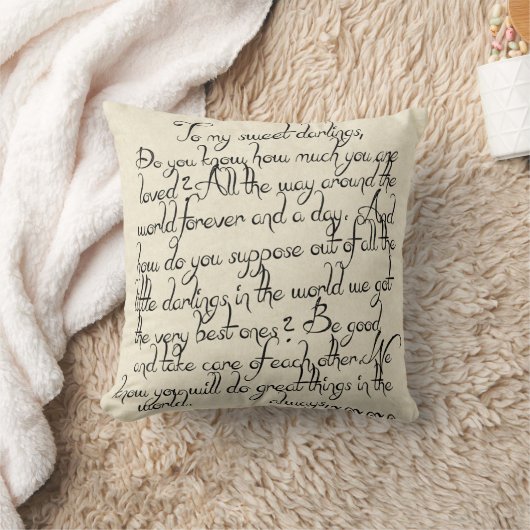 To my sweet darlings,
Do you know how much you are
loved? All the way around the
world forever and a day. And
how do you suppose out of all the
little darlings in the world we got
the very best ones? Be good
and take care of each other. We
know you will do great things in the
world.. always,